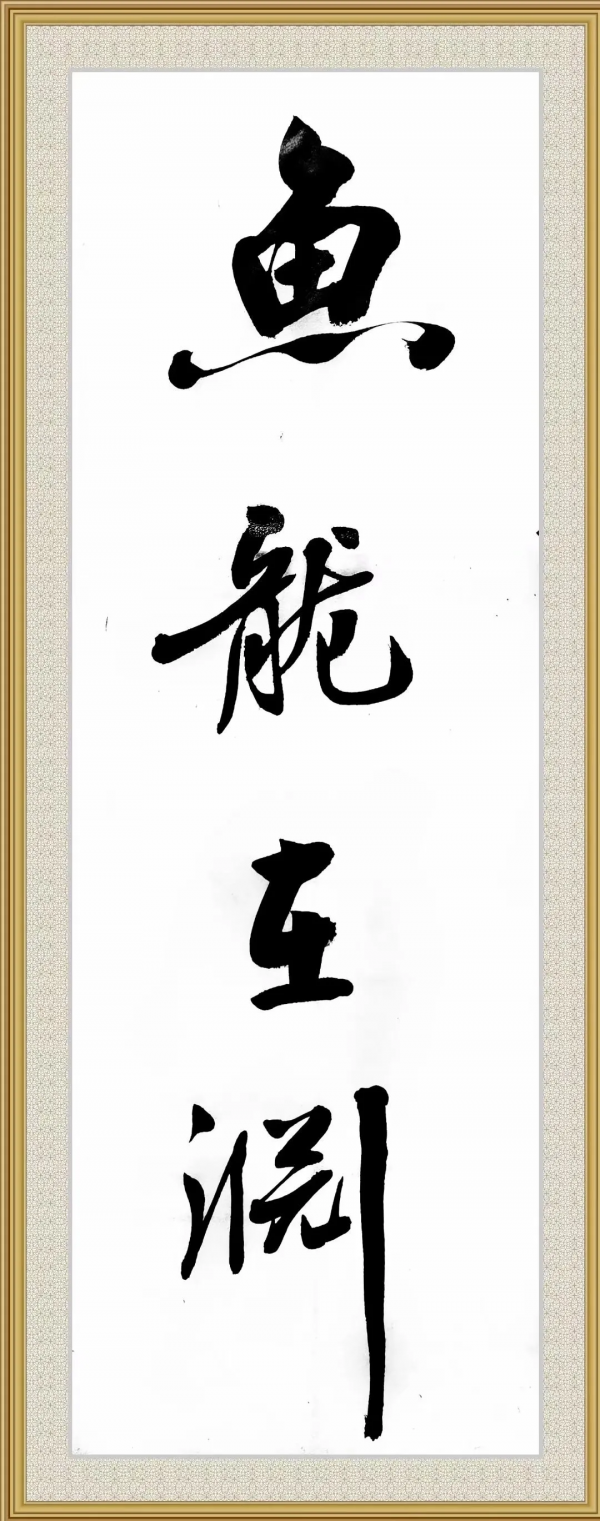 魚龍在淵